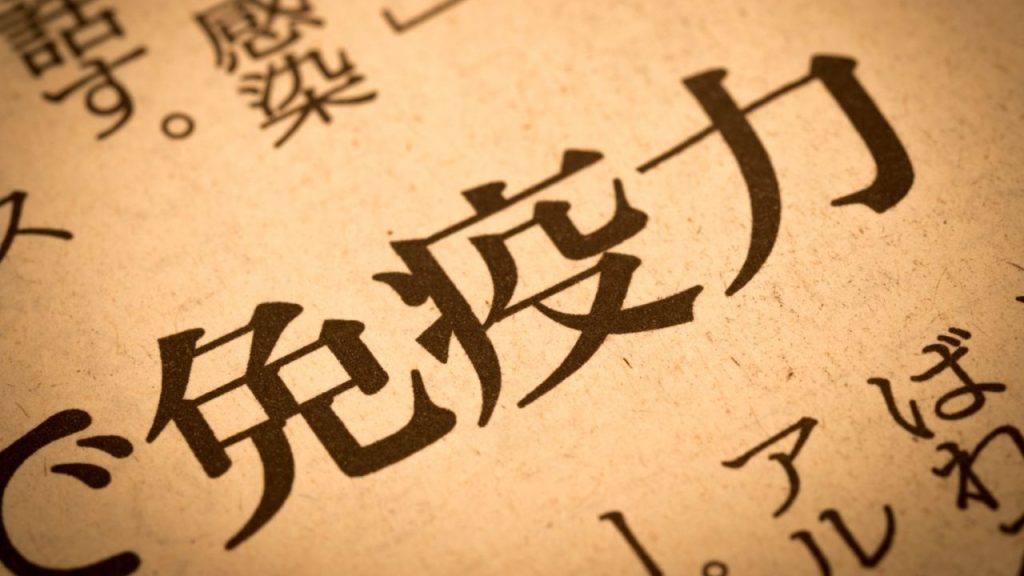 話す。
感染
ス
で免疫力
ば
わ
アル